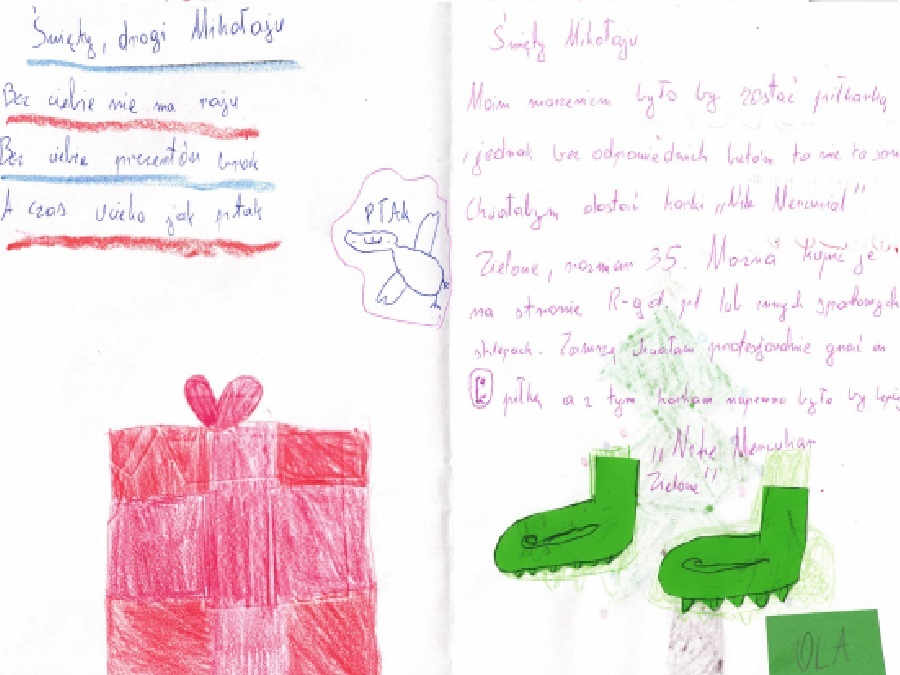 Święty, drogi Mikołaju
Bez ciebie nie ma raju
Bez ciebie prezentów brak
A czas ucieka jak ptak
PTAK
Święty Mikołaju
Moim marzeniem było by zostać piłkarką
, jednak bez odpowiednich butów to nie to sam
Chciałabym dostać korki „Nike Mercurial”
Zielone, rozmiar 35. Można kupić je
na stronie R-gol. pl lub innych sportowych
sklepach. Zawszę chciałam profesjonalnie grać w
piłkę a z tym korkam napewno było by lepiej
„Nike Mercurial
Zielone”
OLA